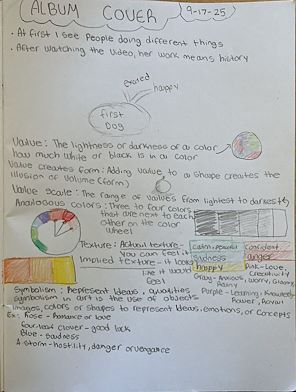 ALBUM COVER
9-17-25
• At first I see people doing different things
• After watching the video, her work means history
excited
happy
first
Dog
Value: The lightness or darkness of a color
how much white or black is in a color
Value creates form: Adding value to a shape creates the
illusion of volume (form)
Value scale: The range of values from lightest to darkest
Analogous colors: Three to four colors
that are next to each
other on the color
wheel
Texture: Actual texture-
You can feel it
Implied texture- it looks
like it would
feel
calm, peaceful
confident
sadness
anger
happy
Pink-Love,
Creativity
Gray-Anxious, worry, Gloomy,
Rainy
Purple-Learning, Knowledge
Power, Royal
Symbolism: Represent Ideas, qualities
Symbolism in art is the use of objects
images, colors or shapes to represent Ideas, emotions, or concepts
Ex: Rose - Romance or love
four-leaf clover - good luck
Blue - Sadness
A storm - hostility, danger or vengance